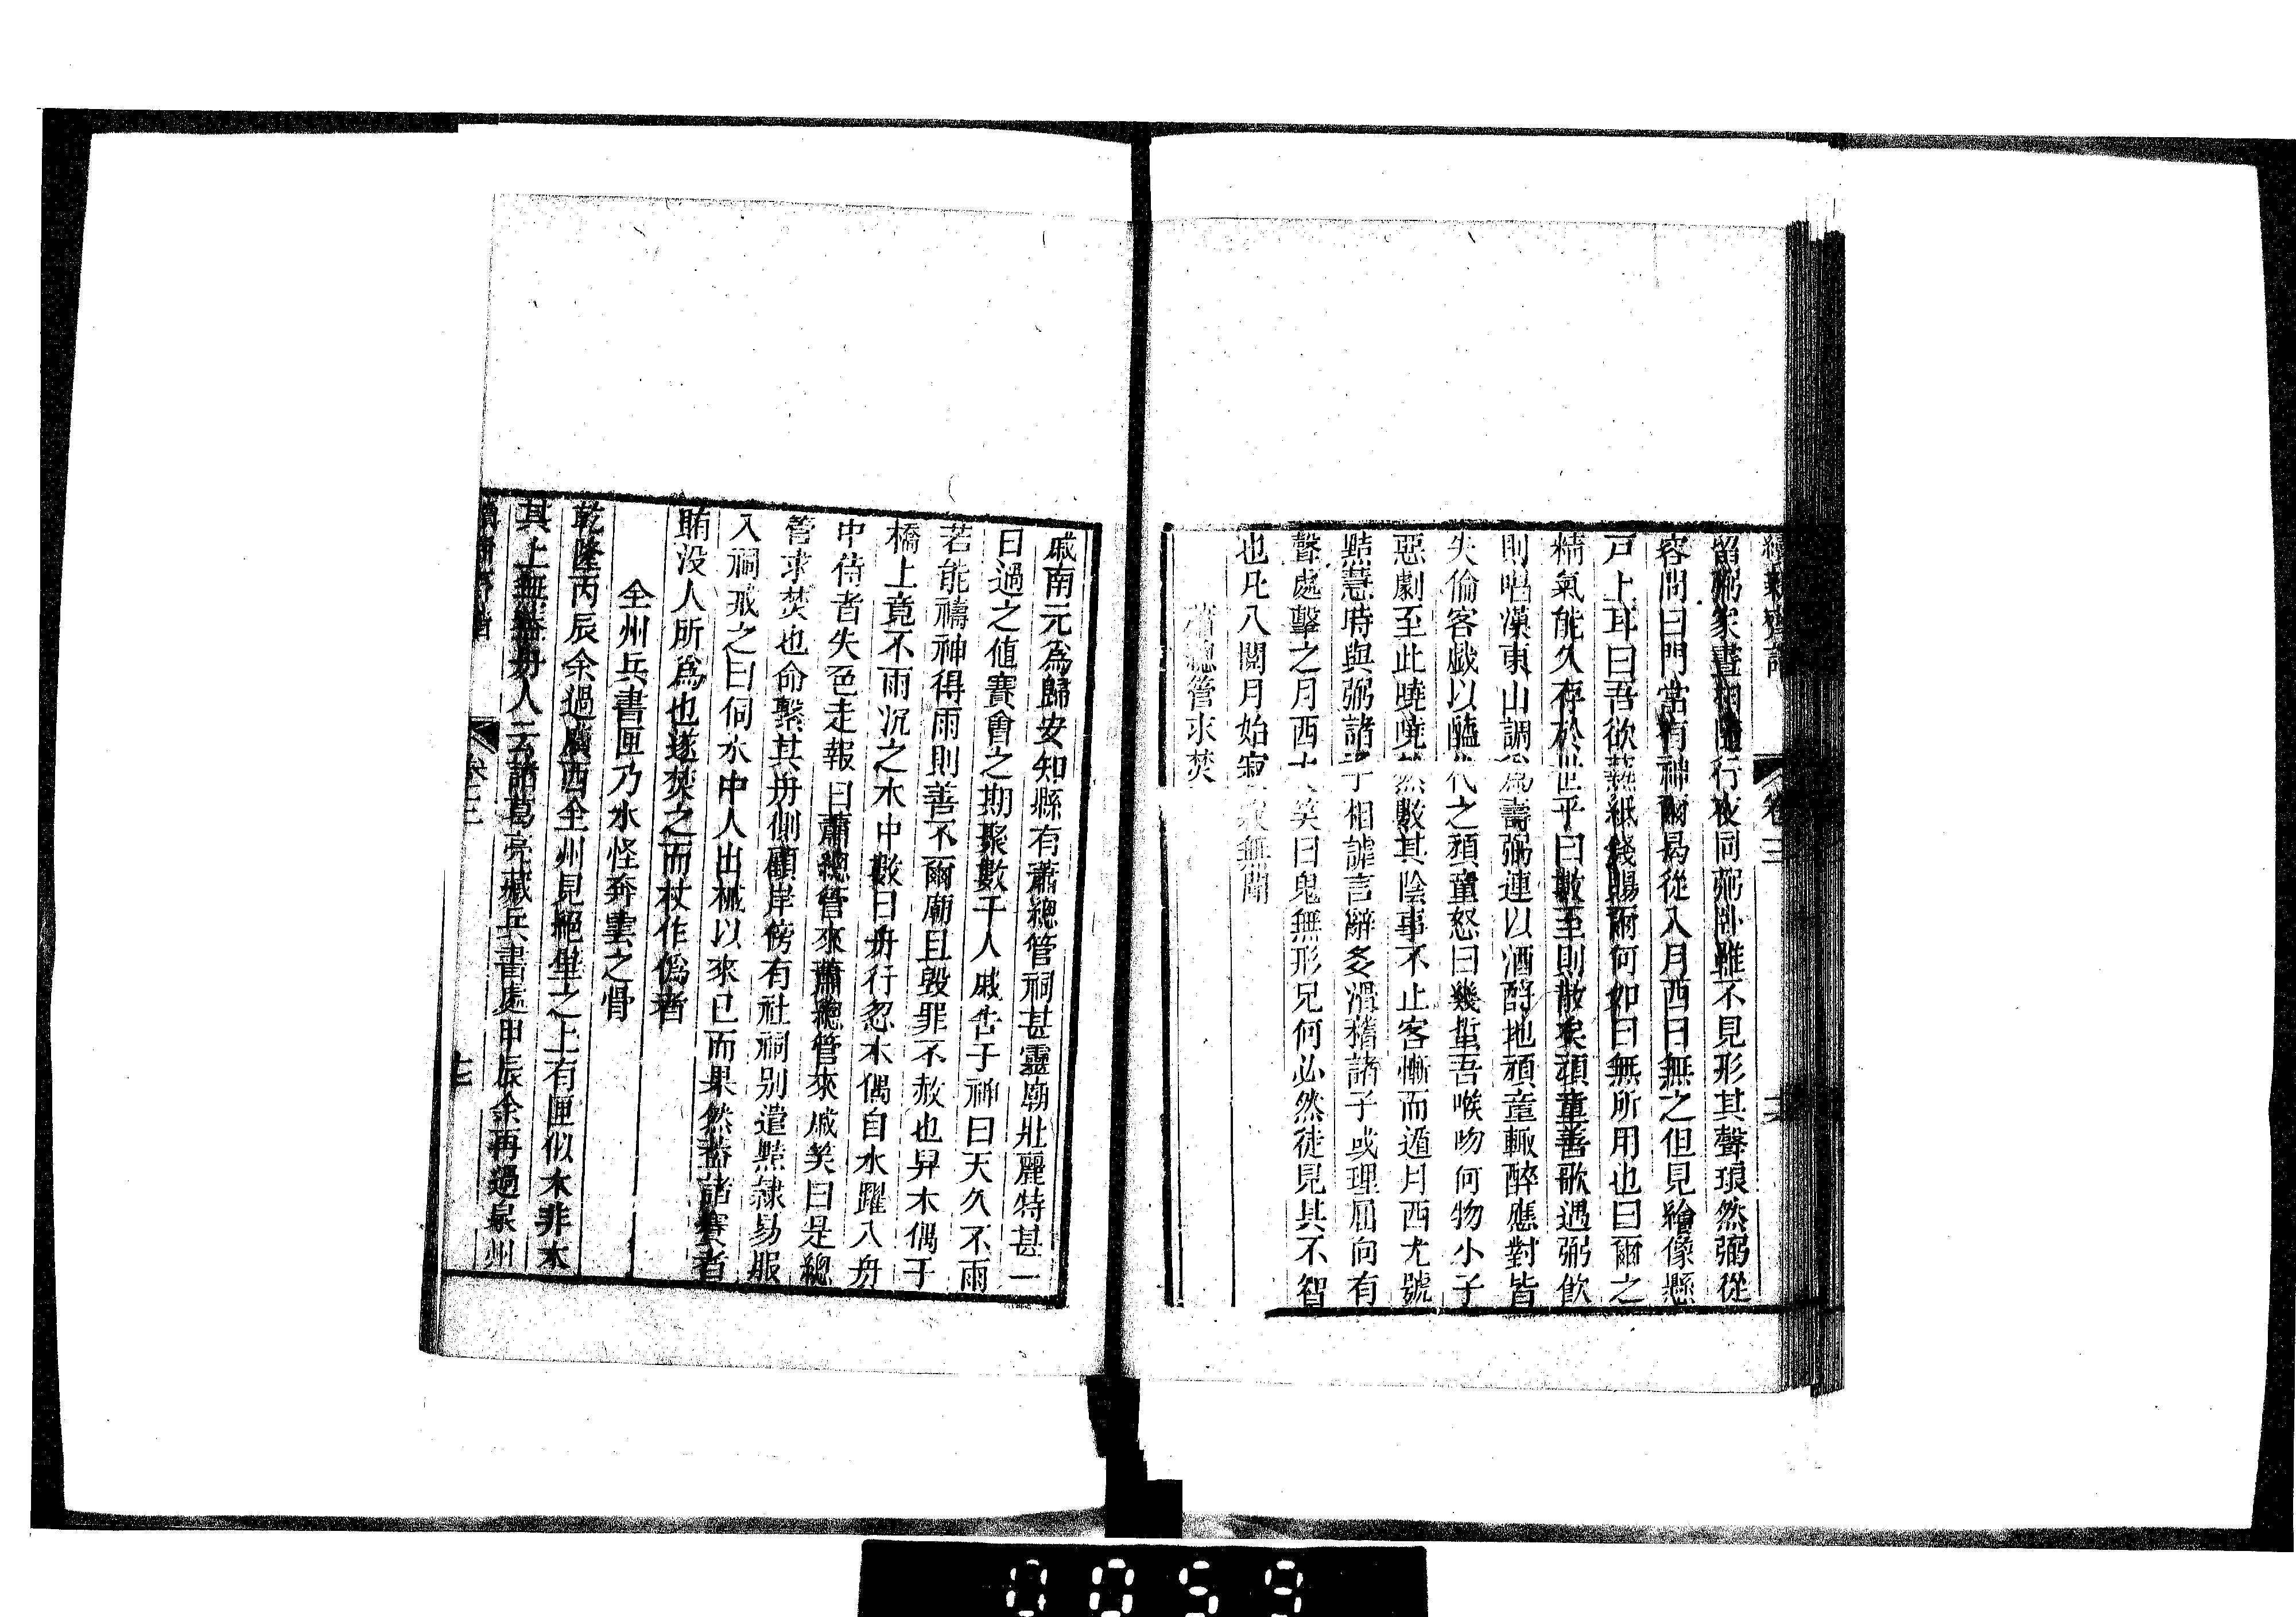 續新齊諧 卷三 六
留弼家晝相隨行夜同弼卧雖不見形其聲琅然弼從
容問曰門當有神爾曷從入月西曰無之但見繪像懸
戸上耳曰吾欲爇紙錢賜爾何如曰無所用也曰爾之
精氣能久存於世乎曰數至則散矣頑童善歌遇弼飲
則唱漢東山調為壽弼連以酒酹地頑童輒醉應對皆
失倫客戯以醯代之頑童怒曰幾蜇吾喉吻何物小子
惡劇至此嘵嘵然數其陰事不止客慚而遁月西尤號
黠慧時與弼諸子相謔言辭多滑稽諸子或理屈向有
聲處擊之月西大笑曰鬼無形兄何必然徒見其不智
也凡八閱月始寂無聞
蕭總管求焚
戚南元為歸安知縣有蕭總管祠甚靈廟壯麗特甚一
日過之值賽會之期聚數千人戚告于神曰天久不雨
若能禱神得雨則善不爾廟且毀罪不赦也舁木偶于
橋上竟不雨沉之水中數日舟行忽木偶自水躍入舟
中侍者失色走報曰蕭總管來蕭總管來戚笑曰是總
管求焚也命繫其舟側顧岸傍有社祠别遣黠隷易服
入祠戒之曰伺水中人出械以來已而果然葢諸賽者
賄没人所爲也遂焚之而杖作偽者
全州兵書匣乃水怪奔雲之骨
乾隆丙辰余過廣西全州見絕壁之上有匣似木非木
其上無葢舟人云諸葛亮藏兵書處甲辰余再過泉州
卷三